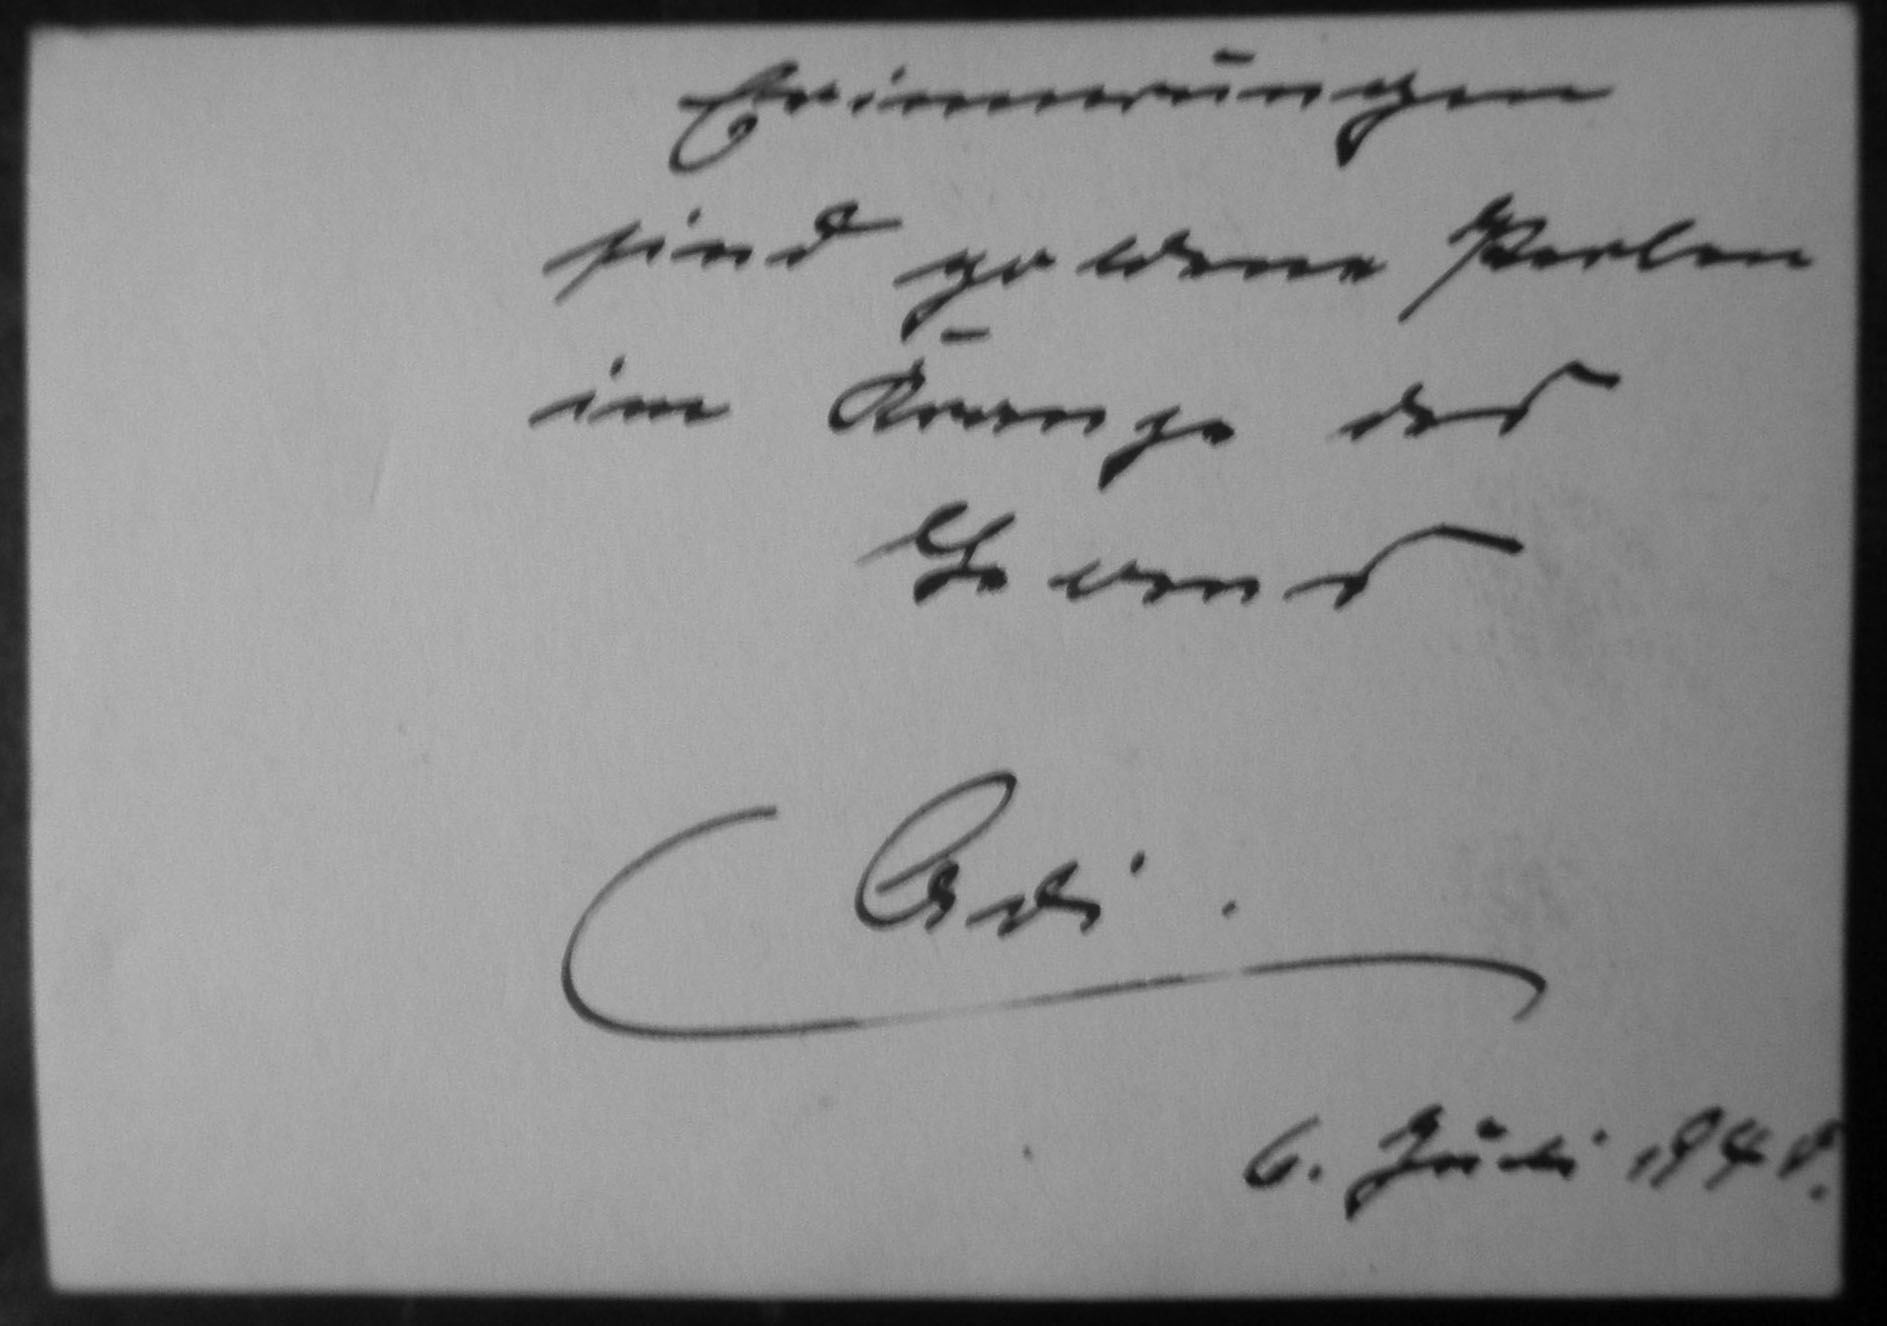 Erinnerungen
sind goldene Perlen
im Kranze des
Lebens
Adi.
6. Juli 1948.